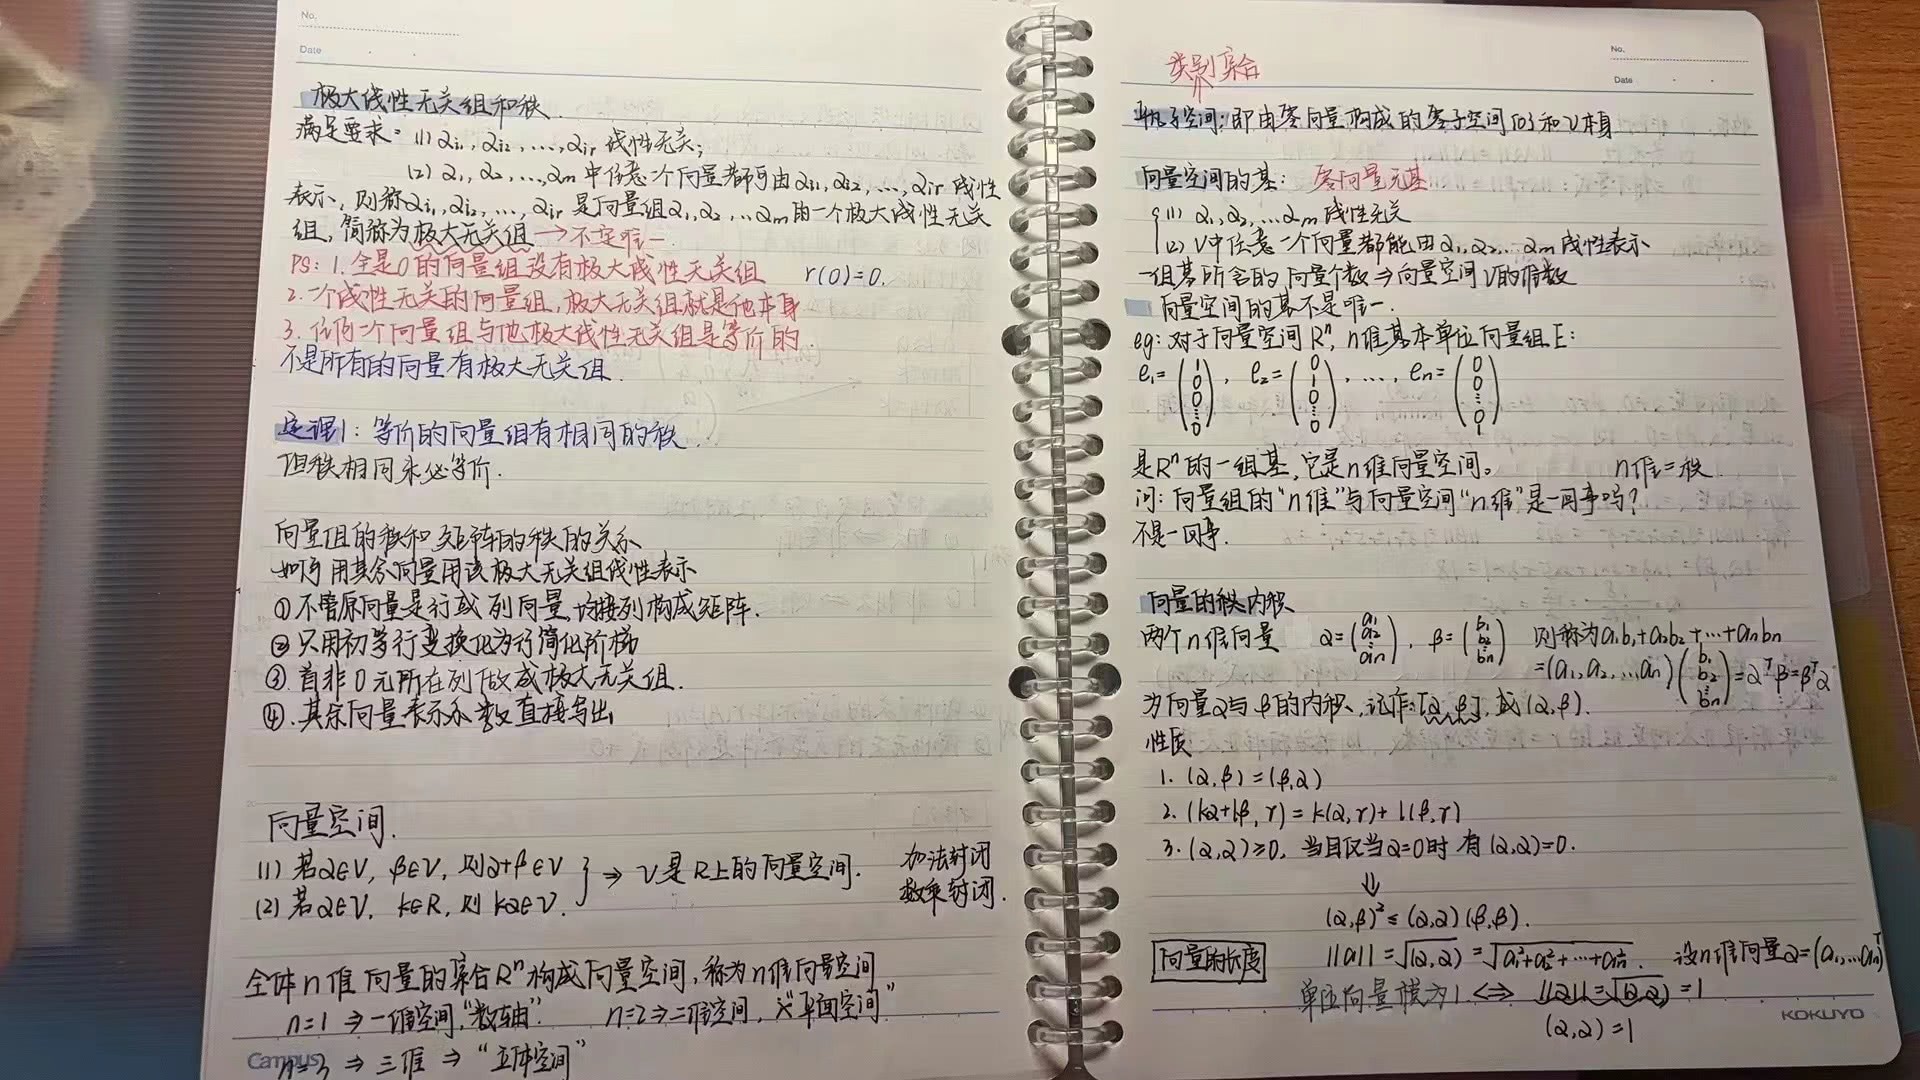 No.
Date
极大线性无关组和秩
满足要求: (1) αi₁, αi₂, ..., αir 线性无关;
(2) α₁, α₂, ..., αm 中任意一个向量都可由 αi₁, αi₂, ..., αir 线性
表示, 则称 αi₁, αi₂, ..., αir 是向量组 α₁, α₂, ...αm 的一个极大线性无关
组, 简称为极大无关组 → 不定唯一.
PS: 1. 全是0的向量组没有极大线性无关组 r(0)=0.
2. 一个线性无关的向量组, 极大无关组就是他本身
3. 任何一个向量组与他极大线性无关组是等价的.
不是所有的向量有极大无关组.
定理1: 等价的向量组有相同的秩.
但秩相同未必等价.
向量组的秩和矩阵的秩的关系
如何用其余向量用该极大无关组线性表示
① 不管原向量是行或列向量, 均按列构成矩阵.
② 只用初等行变换化为行简化阶梯
③. 首非0元所在列做成极大无关组.
④. 其余向量表示系数直接写出
向量空间.
(1) 若α∈V, β∈V, 则α+β∈V } ⇒ V是R上的向量空间. 加法封闭
(2) 若α∈V, k∈R, 则kα∈V. 数乘封闭.
全体n维向量的集合Rⁿ构成向量空间, 称为n维向量空间
n=1 ⇒ 一维空间, "数轴". n=2 ⇒ 二维空间, "平面空间"
n=3 ⇒ 三维 ⇒ "立体空间"
Campus
No.
Date
类别集合
平凡子空间: 即由零向量构成的零子空间{0}和V本身
向量空间的基: 零向量无基
{ (1) α₁, α₂, ...αm 线性无关
(2) V中任意一个向量都能由α₁, α₂, ...αm 线性表示
一组基所含的向量个数 ⇒ 向量空间V的维数
向量空间的基不是唯一.
eg: 对于向量空间Rⁿ, n维基本单位向量组E:
e₁=(1 0 0 ⋮ 0), e₂=(0 1 0 ⋮ 0), ..., en=(0 0 0 ⋮ 1)
是Rⁿ的一组基, 它是n维向量空间。 n维=秩
问: 向量组的"n维"与向量空间"n维"是一回事吗?
不是一回事.
向量的内积
两个n维向量 α=(a₁ a₂ ⋮ an), β=(b₁ b₂ ⋮ bn) 则称为a₁b₁+a₂b₂+...+anbn
=(a₁, a₂, ...an)(b₁ b₂ ⋮ bn)=αᵀβ=βᵀα
为向量α与β的内积, 记作: [α, β], 或(α, β).
性质
1. (α, β)=(β, α)
2. (kα+lβ, γ)=k(α, γ)+l(β, γ)
3. (α, α)≥0, 当且仅当α=0时 有(α, α)=0.
⇓
(α, β)²≤(α, α)(β, β).
向量的长度 ||α||=√(α, α)=√a₁²+a₂²+...+an². 设n维向量α=(a₁, ...an)ᵀ
单位向量模为1. ⟺ ||α||=√(α, α)=1
(α, α)=1
KOKUYO